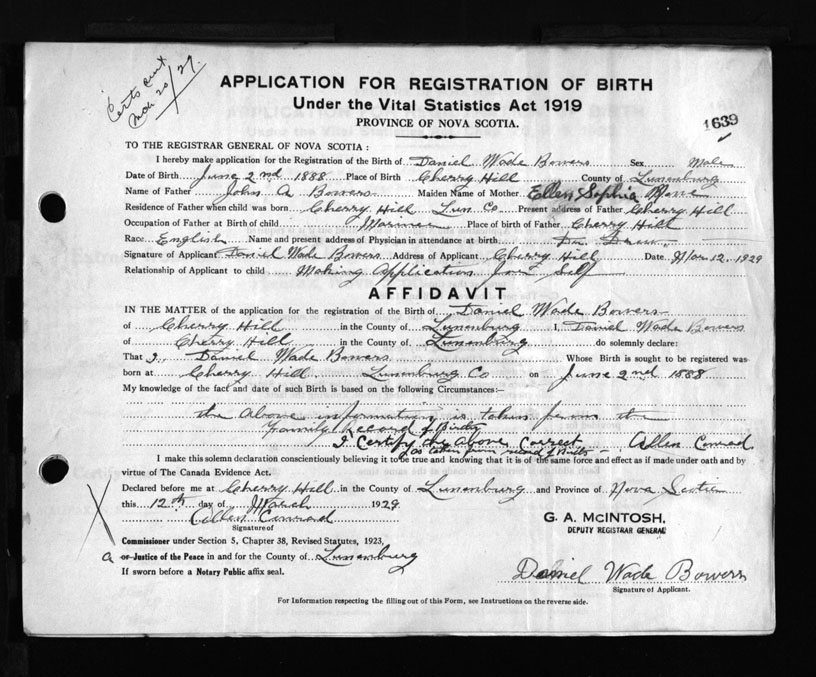 Certs cert
Mch 20/29.
APPLICATION FOR REGISTRATION OF BIRTH
Under the Vital Statistics Act 1919
PROVINCE OF NOVA SCOTIA.
1639
TO THE REGISTRAR GENERAL OF NOVA SCOTIA :
I hereby make application for the Registration of the Birth of Daniel Wade Bowers Sex Male
Date of Birth June 2nd 1888 Place of Birth Cherry Hill County of Lunenburg
Name of Father John A Bowers Maiden Name of Mother Ellen Sophia
Residence of Father when child was born Cherry Hill Lun Co Present address of Father Cherry Hill
Occupation of Father at Birth of child Mariner Place of birth of Father Cherry Hill
Race English Name and present address of Physician in attendance at birth
Signature of Applicant Daniel Wade Bowers Address of Applicant Cherry Hill Date Mar 12, 1929
Relationship of Applicant to child Making Application for Self
AFFIDAVIT
IN THE MATTER of the application for the registration of the Birth of Daniel Wade Bowers
of Cherry Hill in the County of Lunenburg I, Daniel Wade Bowers
of Cherry Hill in the County of Lunenburg do solemnly declare:
That I Daniel Wade Bowers Whose Birth is sought to be registered was
born at Cherry Hill Lunenburg Co on June 2nd 1888
My knowledge of the fact and date of such Birth is based on the following Circumstances:—
the above information is taken from the
Family Record of Births
I Certify the above Correct Allen Conrad
as taken from record of Births
I make this solemn declaration conscientiously believing it to be true and knowing that it is of the same force and effect as if made under oath and by
virtue of The Canada Evidence Act.
Declared before me at Cherry Hill in the County of Lunenburg and Province of Nova Scotia
this 12th day of March 1929
Allen Conrad
Signature of
G. A. McINTOSH,
DEPUTY REGISTRAR GENERAL
Commissioner under Section 5, Chapter 38, Revised Statutes, 1923,
a or Justice of the Peace in and for the County of Lunenburg
If sworn before a Notary Public affix seal.
Daniel Wade Bowers
Signature of Applicant.
For Information respecting the filling out of this Form, see Instructions on the reverse side.